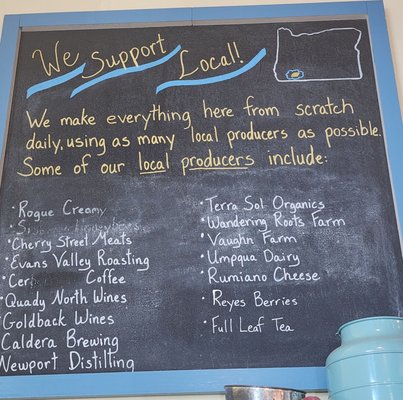 We Support Local!
We make everything here from scratch
daily, using as many local producers as possible.
Some of our local producers include:
• Rogue Creamy
• Cherry Street Meats
• Evans Valley Roasting
• Coffee
• Quady North Wines
• Goldback Wines
Caldera Brewing
Newport Distilting
• Terra Sol Organics
• Wandering Roots Farm
• Vaughn Farm
• Umpqua Dairy
• Rumiano Cheese
• Reyes Berries
• Full Leaf Tea